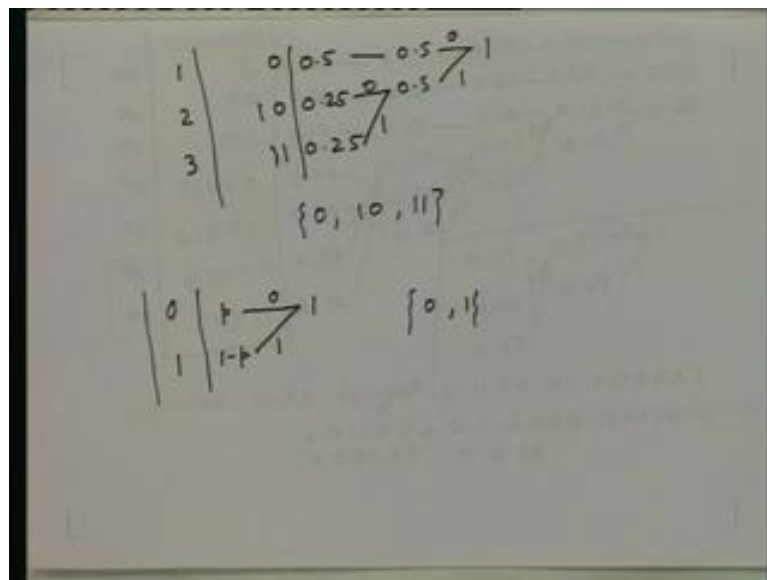 1 0 0.5 — 0.5 0 1
2 10 0.25 0 0.5 1
3 11 0.25 1
{0, 10, 11}
0 p 0 1 {0, 1}
1 1-p 1